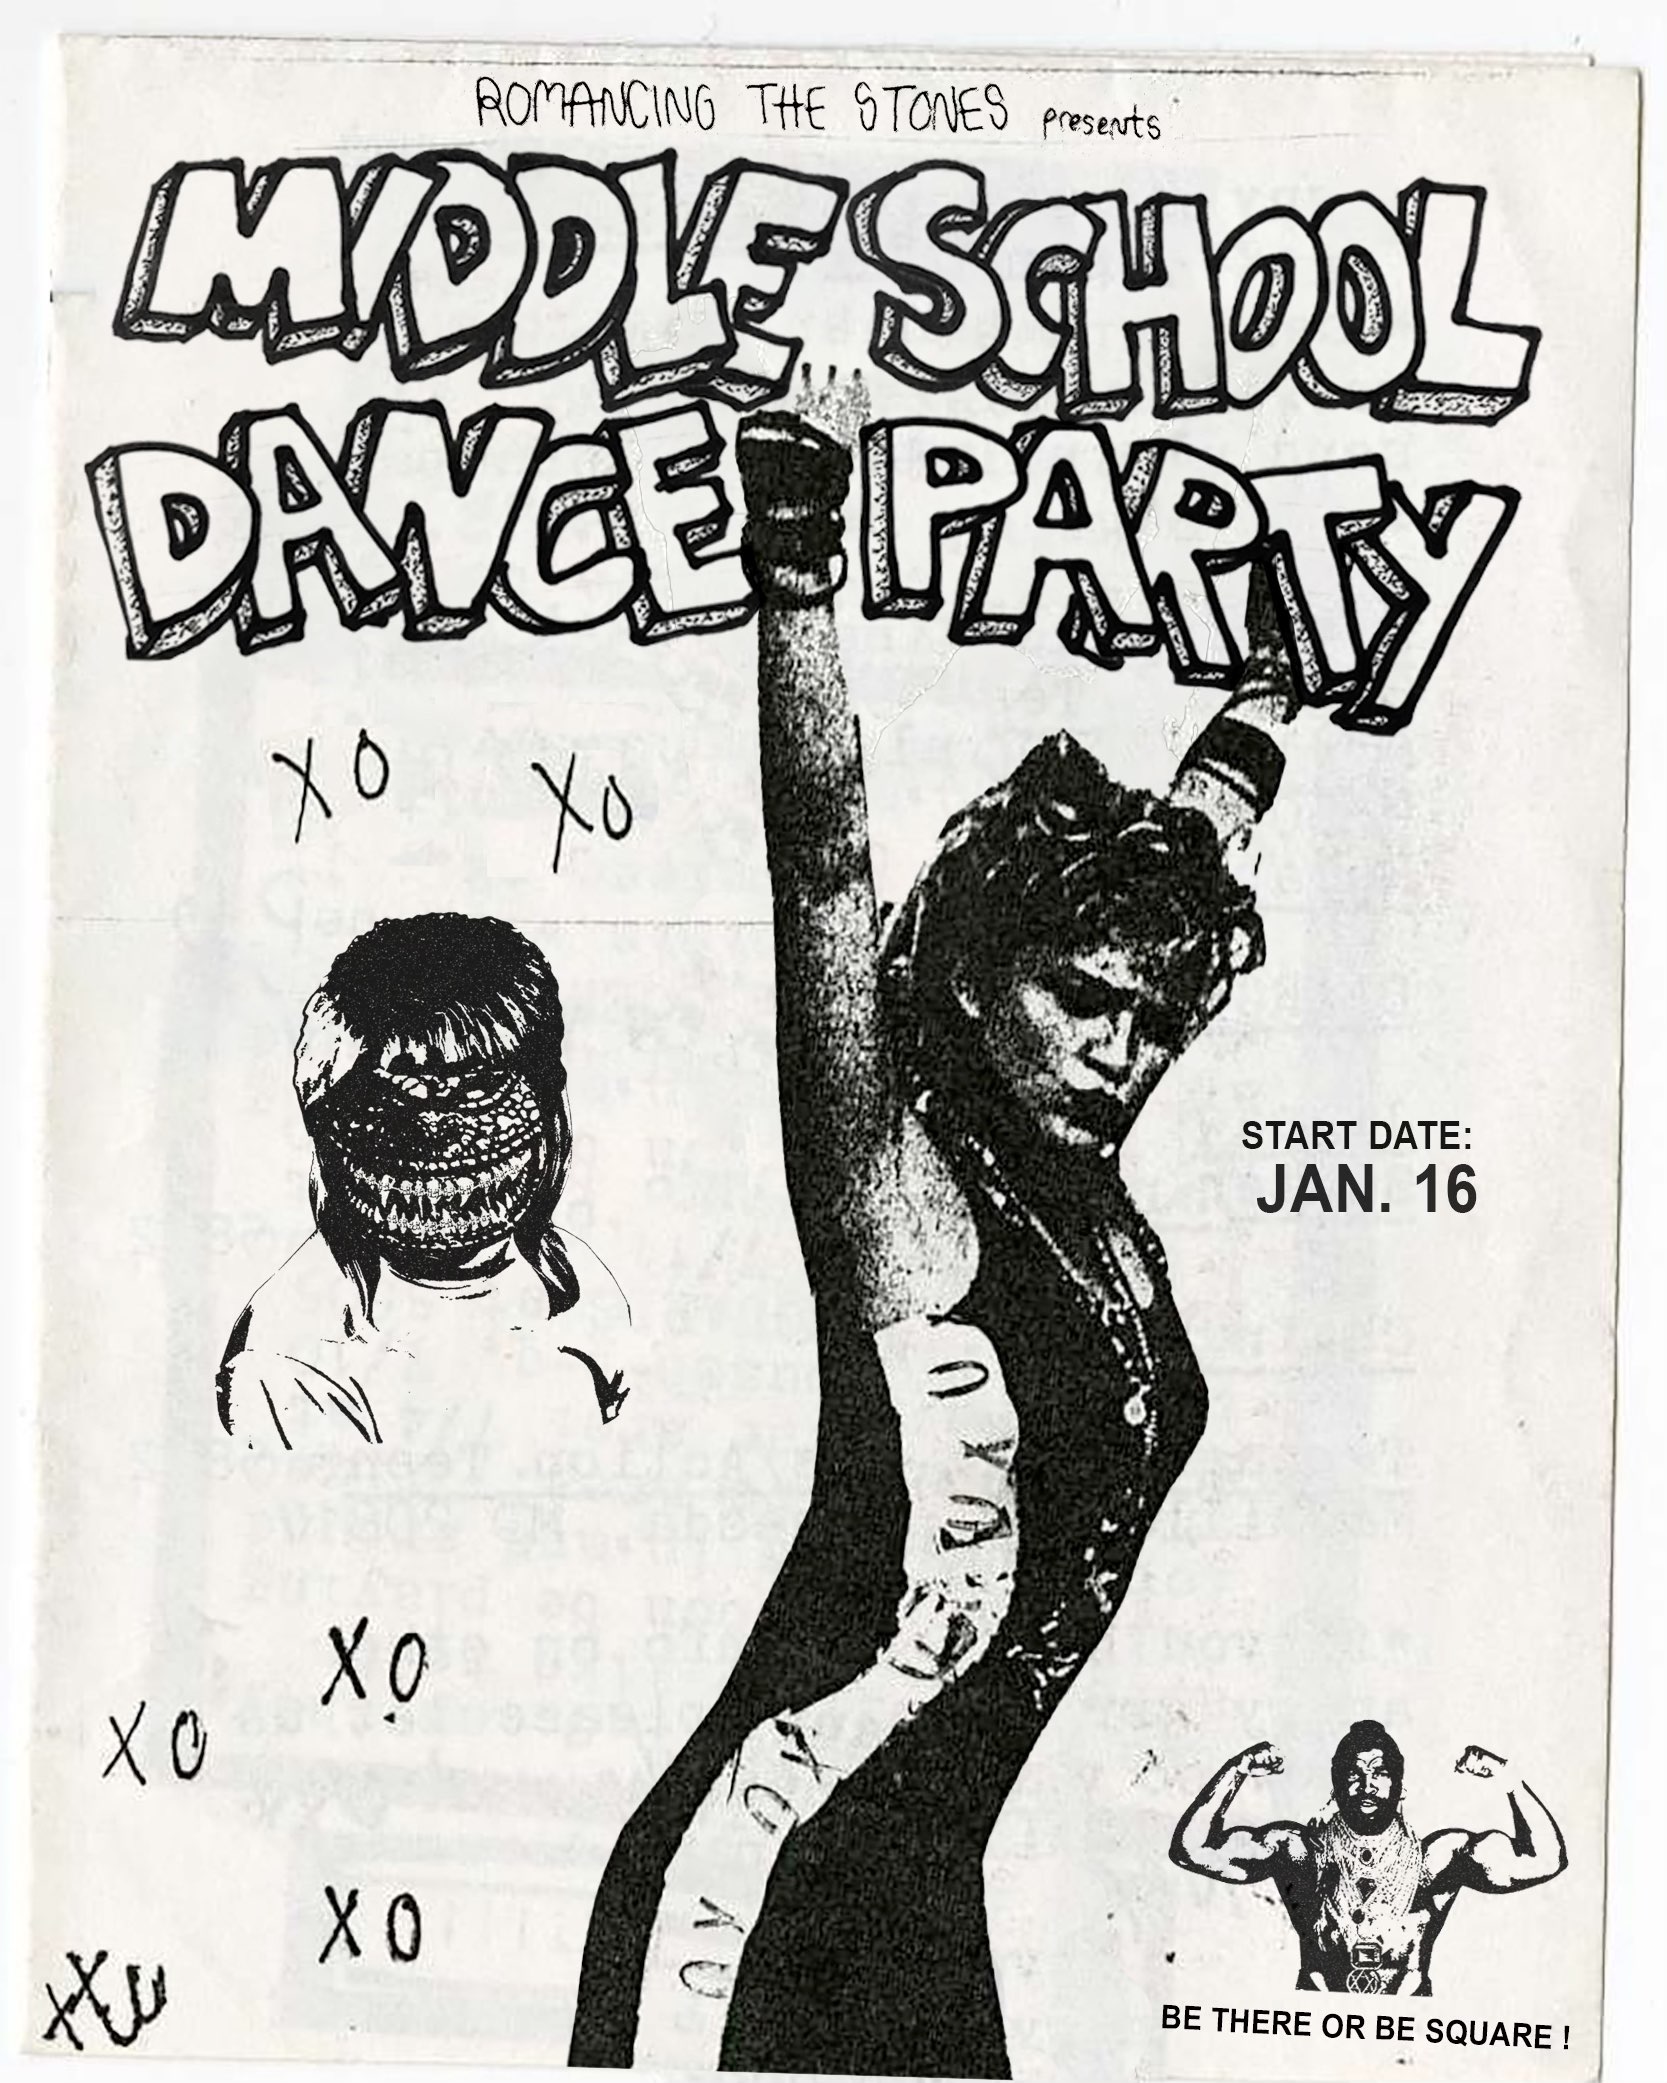 ROMANCING THE STONES presents
MIDDLE SCHOOL
DANCE PARTY
XO XO
START DATE:
JAN. 16
XO
XO
XO
BE THERE OR BE SQUARE !